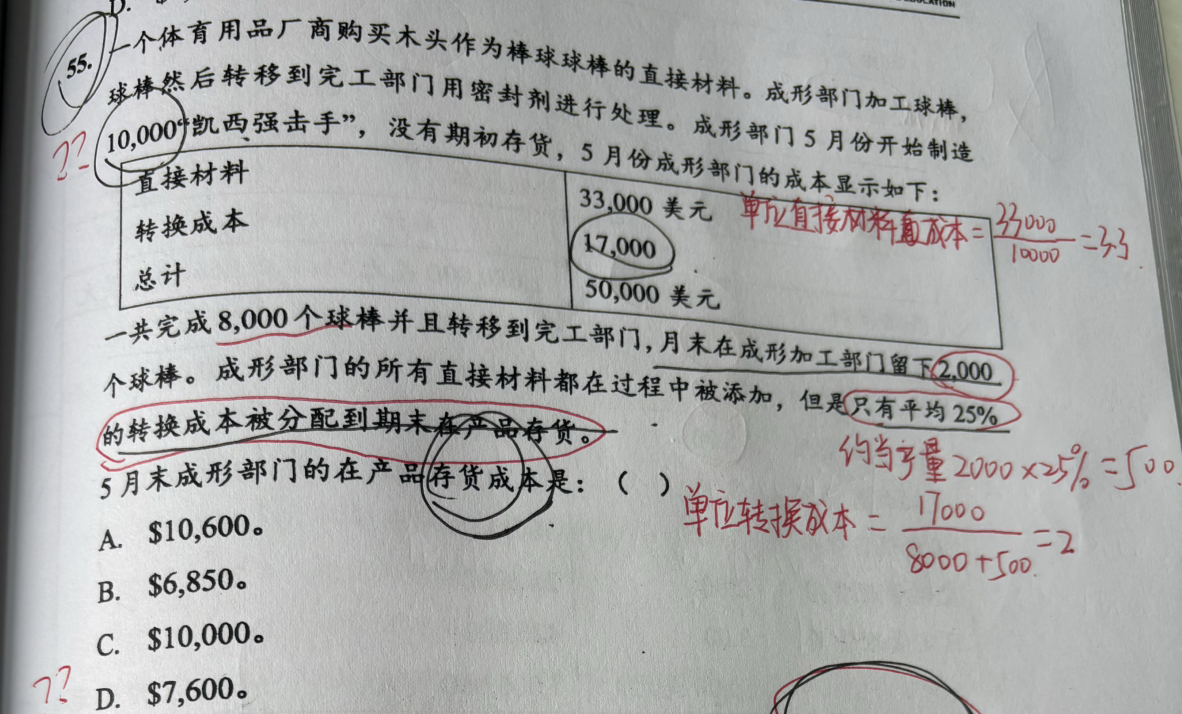 D.
55. 一个体育用品厂商购买木头作为棒球球棒的直接材料。成形部门加工球棒，
球棒然后转移到完工部门用密封剂进行处理。成形部门 5 月份开始制造
?? 10,000“凯西强击手”，没有期初存货，5 月份成形部门的成本显示如下：
直接材料 33,000 美元 单位直接材料成本=33000/10000=3.3
转换成本 17,000
总计 50,000 美元
一共完成 8,000 个球棒并且转移到完工部门，月末在成形加工部门留下 2,000
个球棒。成形部门的所有直接材料都在过程中被添加，但是只有平均 25%
的转换成本被分配到期末在产品存货。
约当产量 2000×25%=500
5 月末成形部门的在产品存货成本是：（ ）
单位转换成本=17000/8000+500=2
A. $10,600。
B. $6,850。
C. $10,000。
?? D. $7,600。